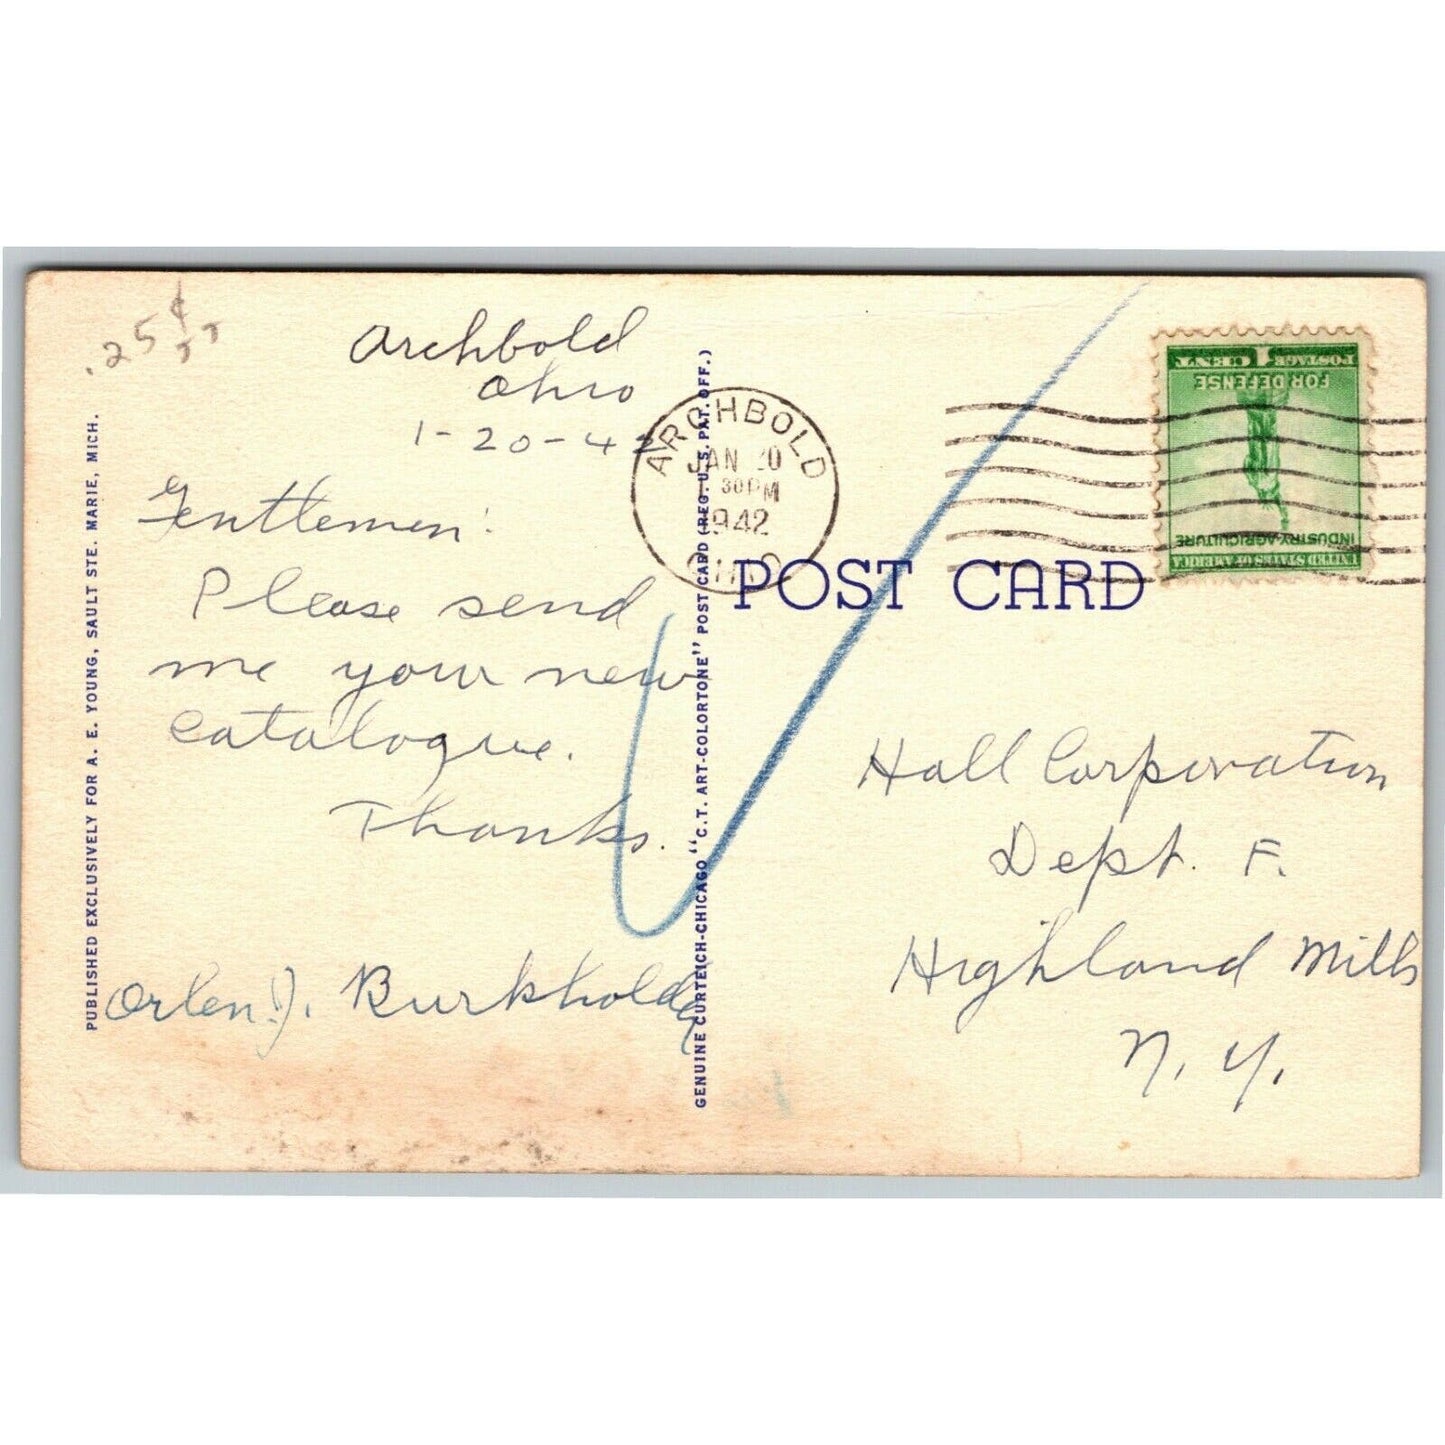 .25¢
Archbold
Ohio
1-20-42
Gentlemen:
Please send
me your new
catalogue.
Thanks.
Orlen J. Burkholder
PUBLISHED EXCLUSIVELY FOR A. E. YOUNG, SAULT STE. MARIE, MICH.
GENUINE CURTEICH-CHICAGO "C.T. ART-COLORTONE" POST CARD (REG. U.S. PAT. OFF.)
ARCHBOLD
JAN 20
30PM
1942
OHIO
POST CARD
UNITED STATES OF AMERICA
INDUSTRY·AGRICULTURE
FOR DEFENSE
1 CENT POSTAGE
Hall Corporation
Dept. F.
Highland Mills
N. Y.